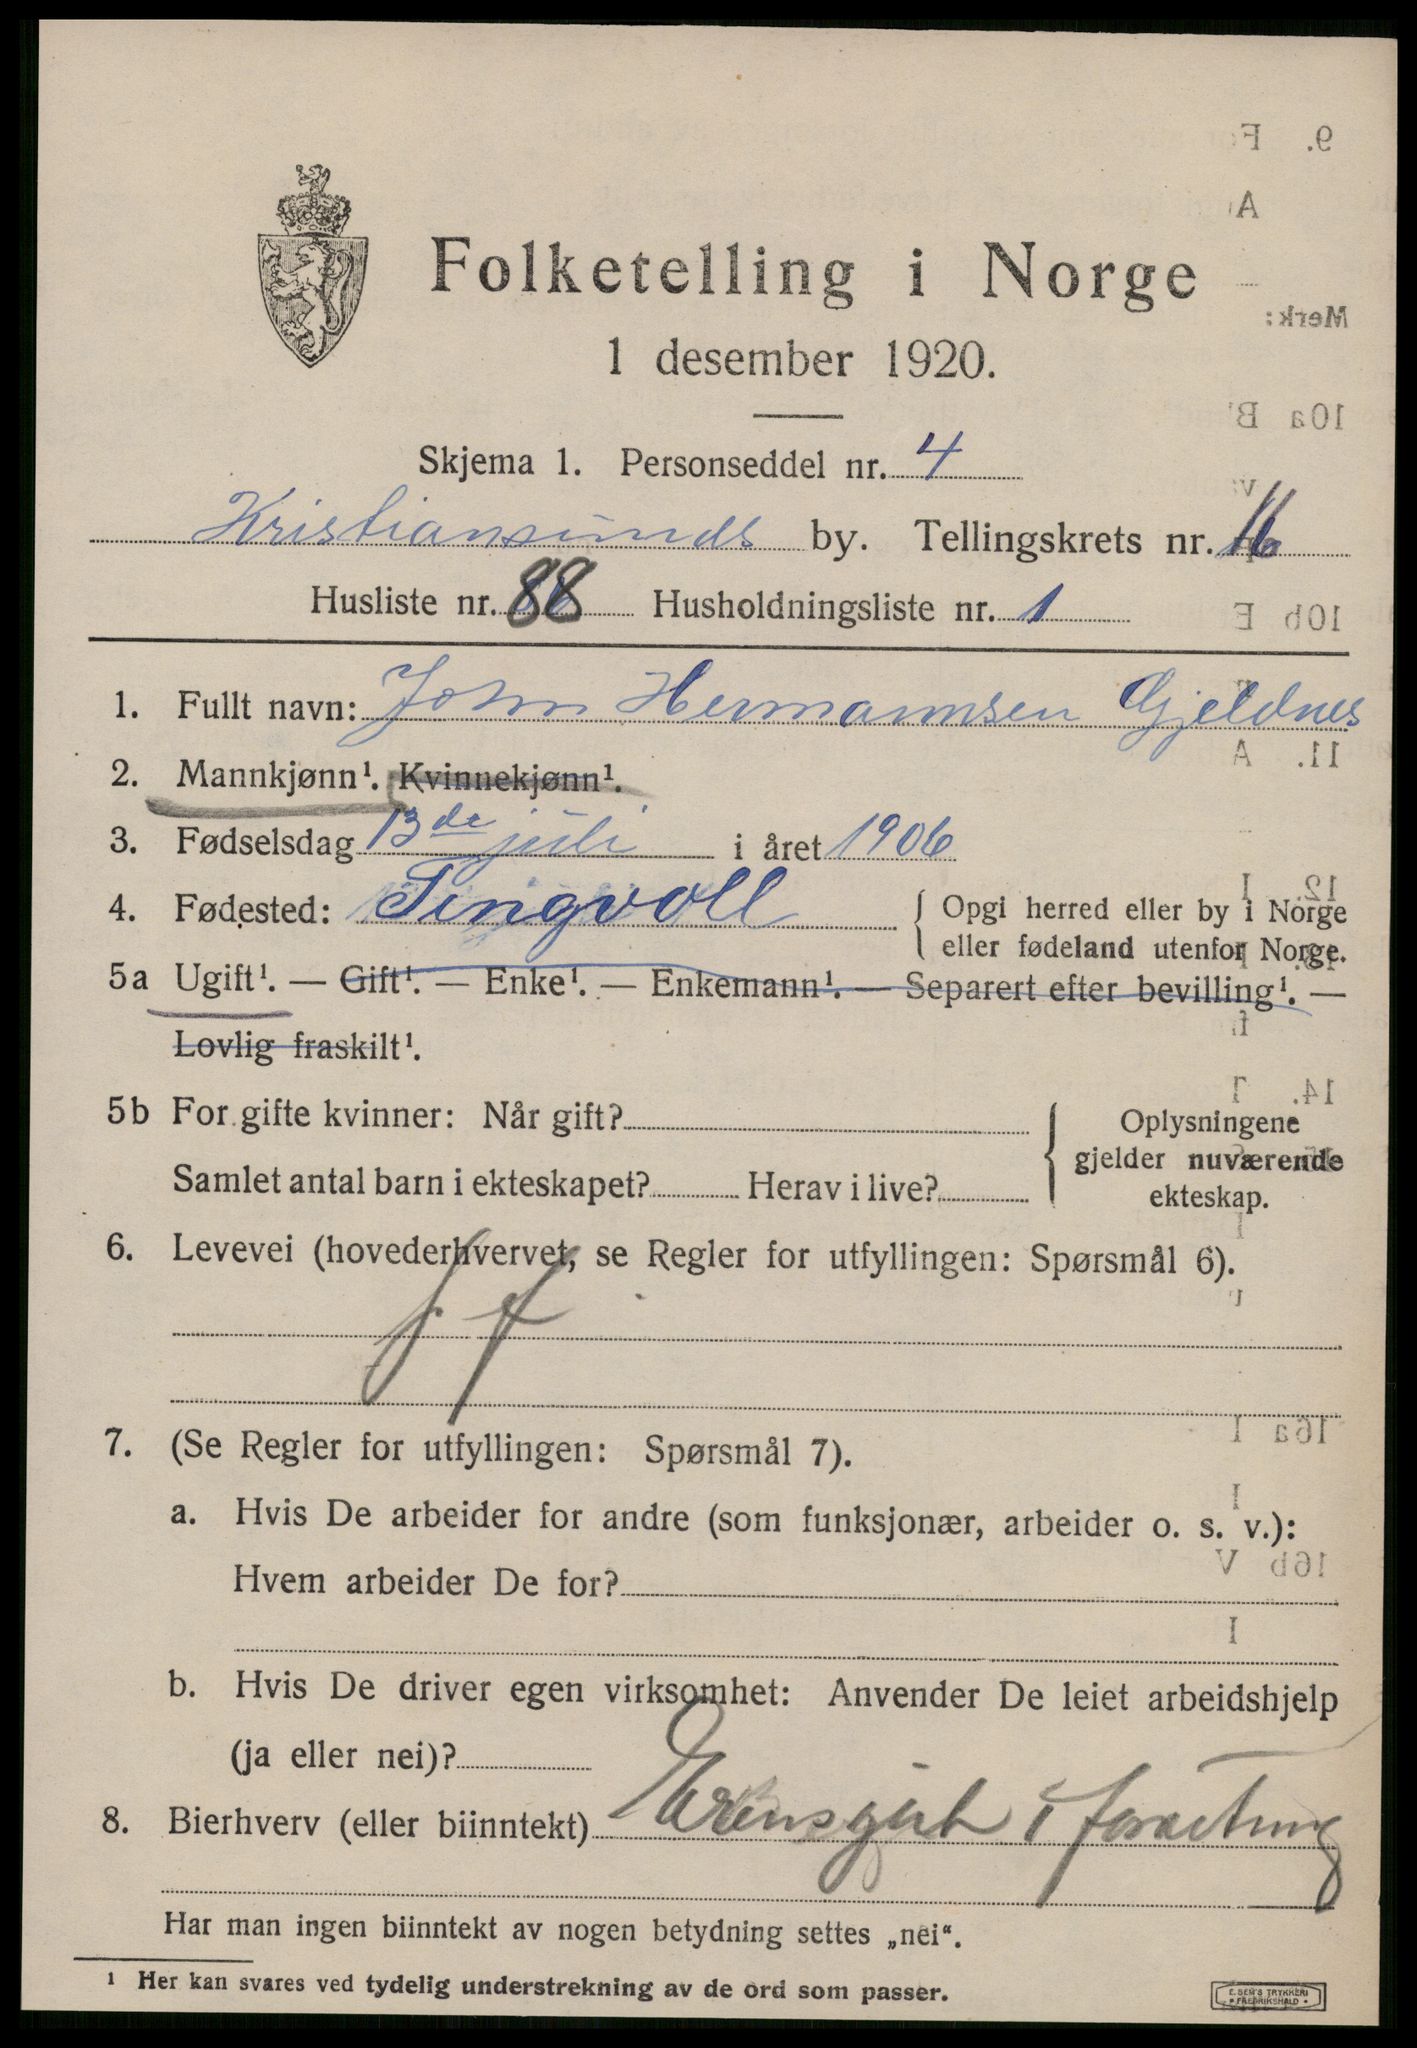 Folketelling i Norge
1 desember 1920.
Skjema 1. Personseddel nr. 4
Kristiansunds by. Tellingskrets nr. 16
Husliste nr. 88 Husholdningsliste nr. 1
1. Fullt navn: John Hermannsen Gjeldnes
2. Mannkjønn¹. Kvinnekjønn¹.
3. Fødselsdag 13de juli i året 1906
4. Fødested: Tingvoll { Opgi herred eller by i Norge
eller fødeland utenfor Norge.
5a Ugift¹. — Gift¹. — Enke¹. — Enkemann¹. — Separert efter bevilling¹. —
Lovlig fraskilt¹.
5b For gifte kvinner: Når gift? { Oplysningene
gjelder nuværende
Samlet antal barn i ekteskapet? Herav i live?
ekteskap.
6. Levevei (hovederhvervet, se Regler for utfyllingen: Spørsmål 6).
7. (Se Regler for utfyllingen: Spørsmål 7).
a. Hvis De arbeider for andre (som funksjonær, arbeider o. s. v.):
Hvem arbeider De for?
b. Hvis De driver egen virksomhet: Anvender De leiet arbeidshjelp
(ja eller nei)?
8. Bierhverv (eller biinntekt) i forretning
Har man ingen biinntekt av nogen betydning settes „nei“.
¹ Her kan svares ved tydelig understrekning av de ord som passer.
E. SEM'S TRYKKERI
• FREDRIKSHALD •